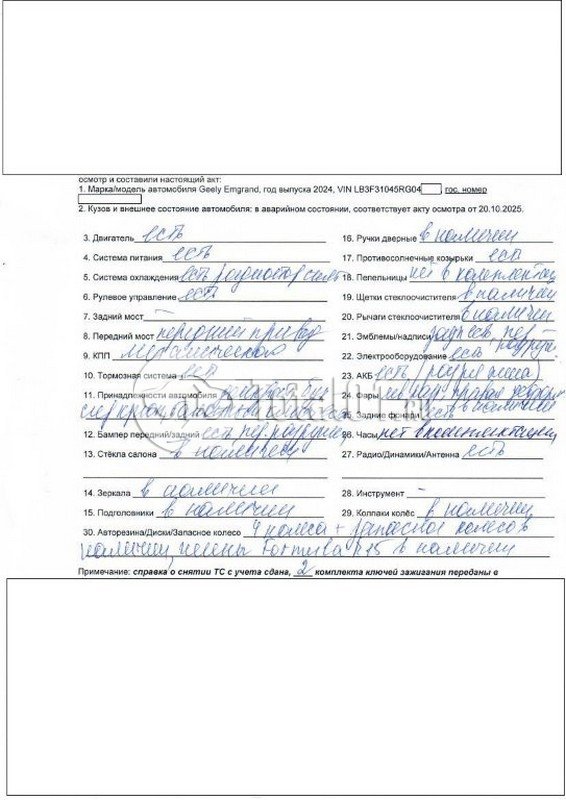 осмотр и составили настоящий акт:
1. Марка/модель автомобиля Geely Emgrand, год выпуска 2024, VIN LB3F31045RG04 , гос. номер
2. Кузов и внешнее состояние автомобиля: в аварийном состоянии, соответствует акту осмотра от 20.10.2025.
3. Двигатель есть
4. Система питания есть
5. Система охлаждения есть радиатор
6. Рулевое управление есть
7. Задний мост
8. Передний мост передний привод
9. КПП механическая
10. Тормозная система есть
11. Принадлежности автомобиля
12. Бампер передний/задний есть пер разрушен
13. Стёкла салона в наличии
14. Зеркала в наличии
15. Подголовники в наличии
16. Ручки дверные в наличии
17. Противосолнечные козырьки есть
18. Пепельницы нет в комплектации
19. Щетки стеклоочистителя в наличии
20. Рычаги стеклоочистителя в наличии
21. Эмблемы/надписи
22. Электрооборудование есть
23. АКБ есть
24. Фары
25. Задние фонари есть в наличии
26. Часы нет в комплектации
27. Радио/Динамики/Антенна есть
28. Инструмент –
29. Колпаки колёс в наличии
30. Авторезина/Диски/Запасное колесо 4 колеса + запасное колесо в
наличии R15 в наличии
Примечание: справка о снятии ТС с учета сдана, 2 комплекта ключей зажигания переданы в